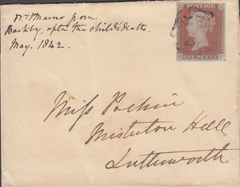 Dr Marr from
Barkby after the child's death.
May. 1842.
POSTAGE
ONE PENNY
Miss Pochin
Misterton Hall
Lutterworth